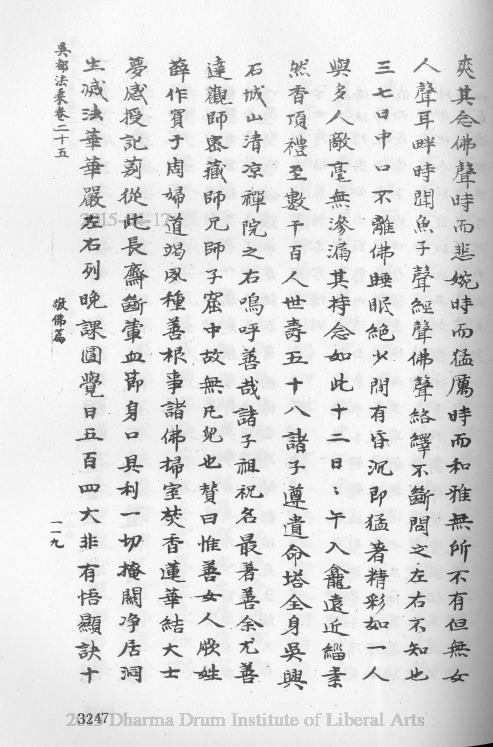 爽其念佛聲時而悲婉時而猛厲時而和雅無所不有但無女
人聲耳畔時聞魚子聲經聲佛聲絡繹不斷問之左右不知也
三七日中口不離佛睡眠絕少間有昏沉即猛著精彩如一人
與多人敵毫無滲漏其持念如此十二日日午入龕遠近緇素
然香頂禮至數千百人世壽五十八諸子遵遺命塔全身吳興
石城山清凉禪院之右嗚呼善哉諸子祖祝名最著善余尤善
達觀師密藏師兄師子窟中故無凡兒也贊曰惟善女人厥姓
薛作賓于周婦道竭夙種善根事諸佛掃室焚香蓮華結大士
夢感授記莂從此長齋斷葷血節身口具利一切掩關净居洞
生滅法華華嚴左右列晚課圓覺日五百四大非有悟顯訣十
吳都法乘卷二十五
敬佛篇
一一九
3247
2015-
17
Dharma Drum Institute of Liberal Arts